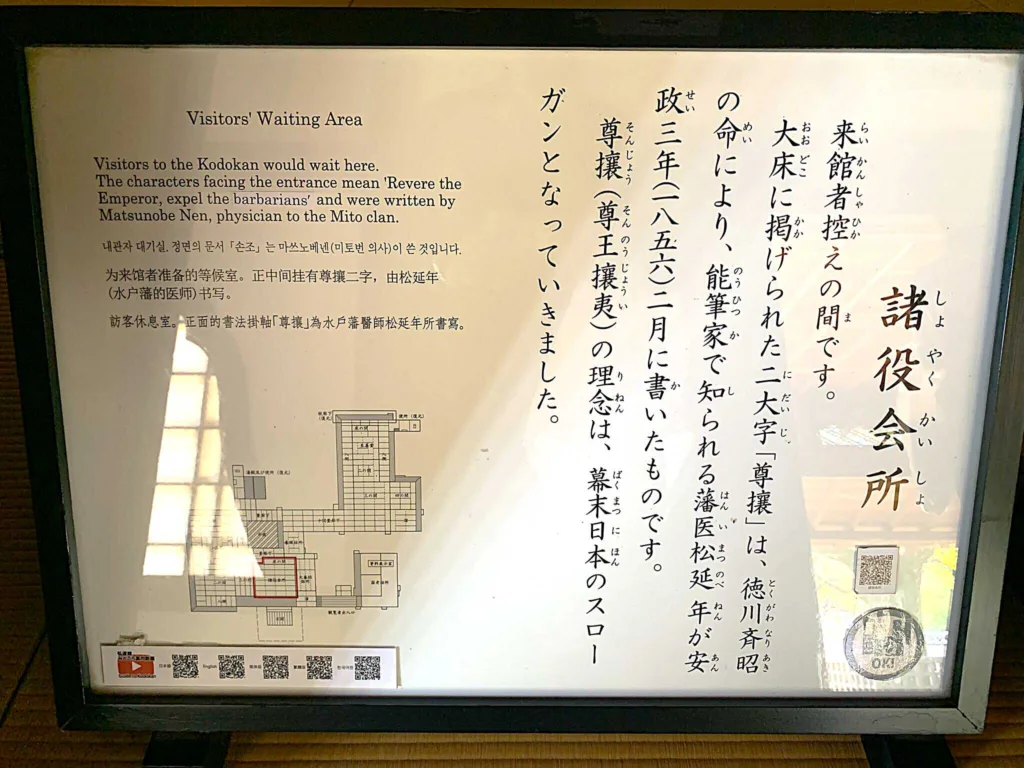 諸役会所
しょやくかいしょ
来館者控えの間です。
らいかんしゃひかま
大床に掲げられた二大字「尊攘」は、徳川斉昭
おおどこかかにだいじとくがわなりあき
の命により、能筆家で知られる藩医松延年が安
めいのうひつかしはんいまつのべねんあん
政三年(一八五六)二月に書いたものです。
せいか
尊攘(尊王攘夷)の理念は、幕末日本のスロー
そんじょうそんのうじょういりねんばくまつにほん
ガンとなっていきました。
Visitors' Waiting Area
Visitors to the Kodokan would wait here.
The characters facing the entrance mean 'Revere the
Emperor, expel the barbarians' and were written by
Matsunobe Nen, physician to the Mito clan.
내관자 대기실. 정면의 문서「손조」는 마쓰노베넨(미토번 의사)이 쓴 것입니다.
为来馆者准备的等候室。正中间挂有尊攘二字，由松延年
(水户藩的医师)书写。
訪客休息室。正面的書法掛軸「尊攘」為水戶藩醫師松延年所書寫。
日本語
English
简体语
繁體語
한국어판
OK!